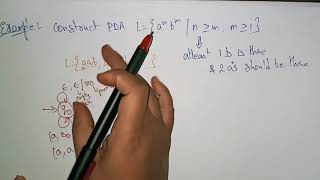 Example:- construct PDA L={aⁿ bᵐ | n ≥ m, m ≥ 1}
atleast 1 b is there
& 2 a's should be there.
L={aab,
ε, ε|z0
q0
(a, z0
(a, a